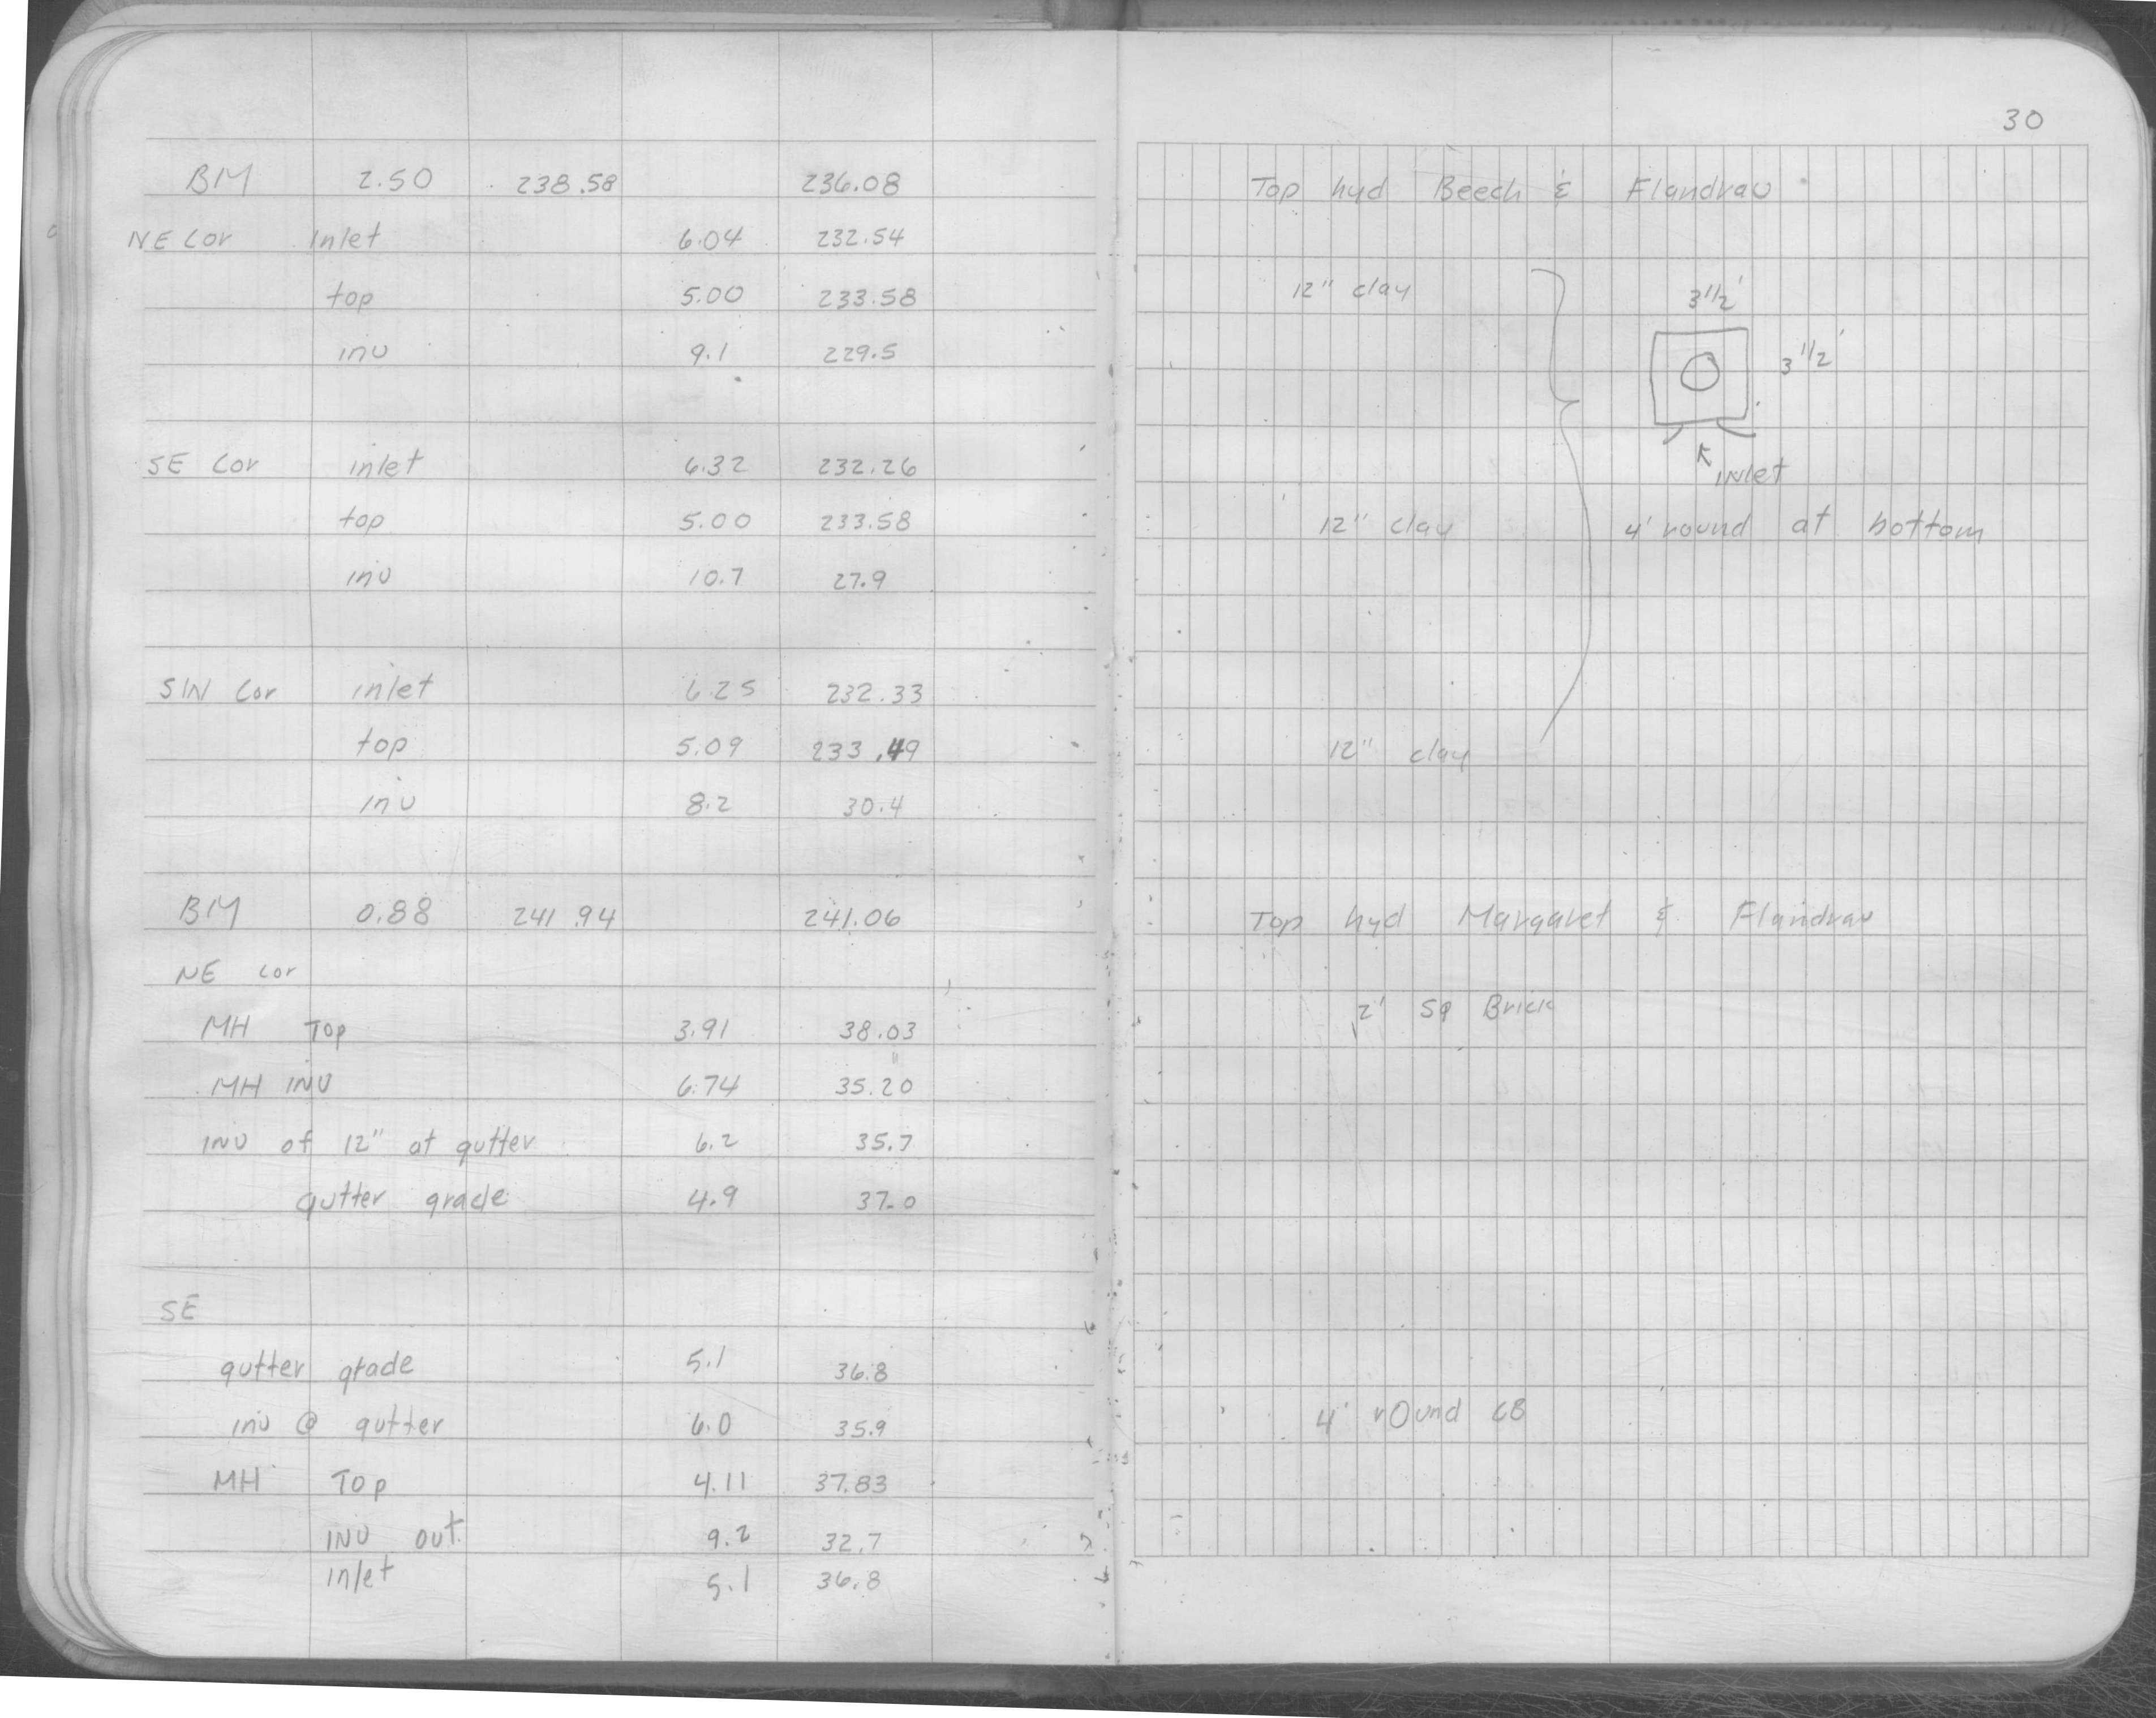 30
BM 2.50 238.58 236.08 Top hyd Beech & Flandrau
NE Cor Inlet 6.04 232.54
top 5.00 233.58 12" clay 3 1/2'
inv 9.1 229.5 3 1/2'
SE Cor inlet 6.32 232.26 INlet
top 5.00 233.58 12" clay 4' round at bottom
inv 10.7 27.9
SW Cor inlet 6.25 232.33
top 5.09 233.49 12" clay
inv 8.2 30.4
BM 0.88 241.94 241.06 Top hyd Margaret & Flandrau
NE cor
MH Top 3.91 38.03 2' Sq Brick
MH INV 6.74 35.20
INV of 12" at gutter 6.2 35.7
gutter grade 4.9 37.0
SE
gutter grade 5.1 36.8
inv @ gutter 6.0 35.9 4' round CB
MH Top 4.11 37.83
INV out. 9.2 32.7
inlet 5.1 36.8